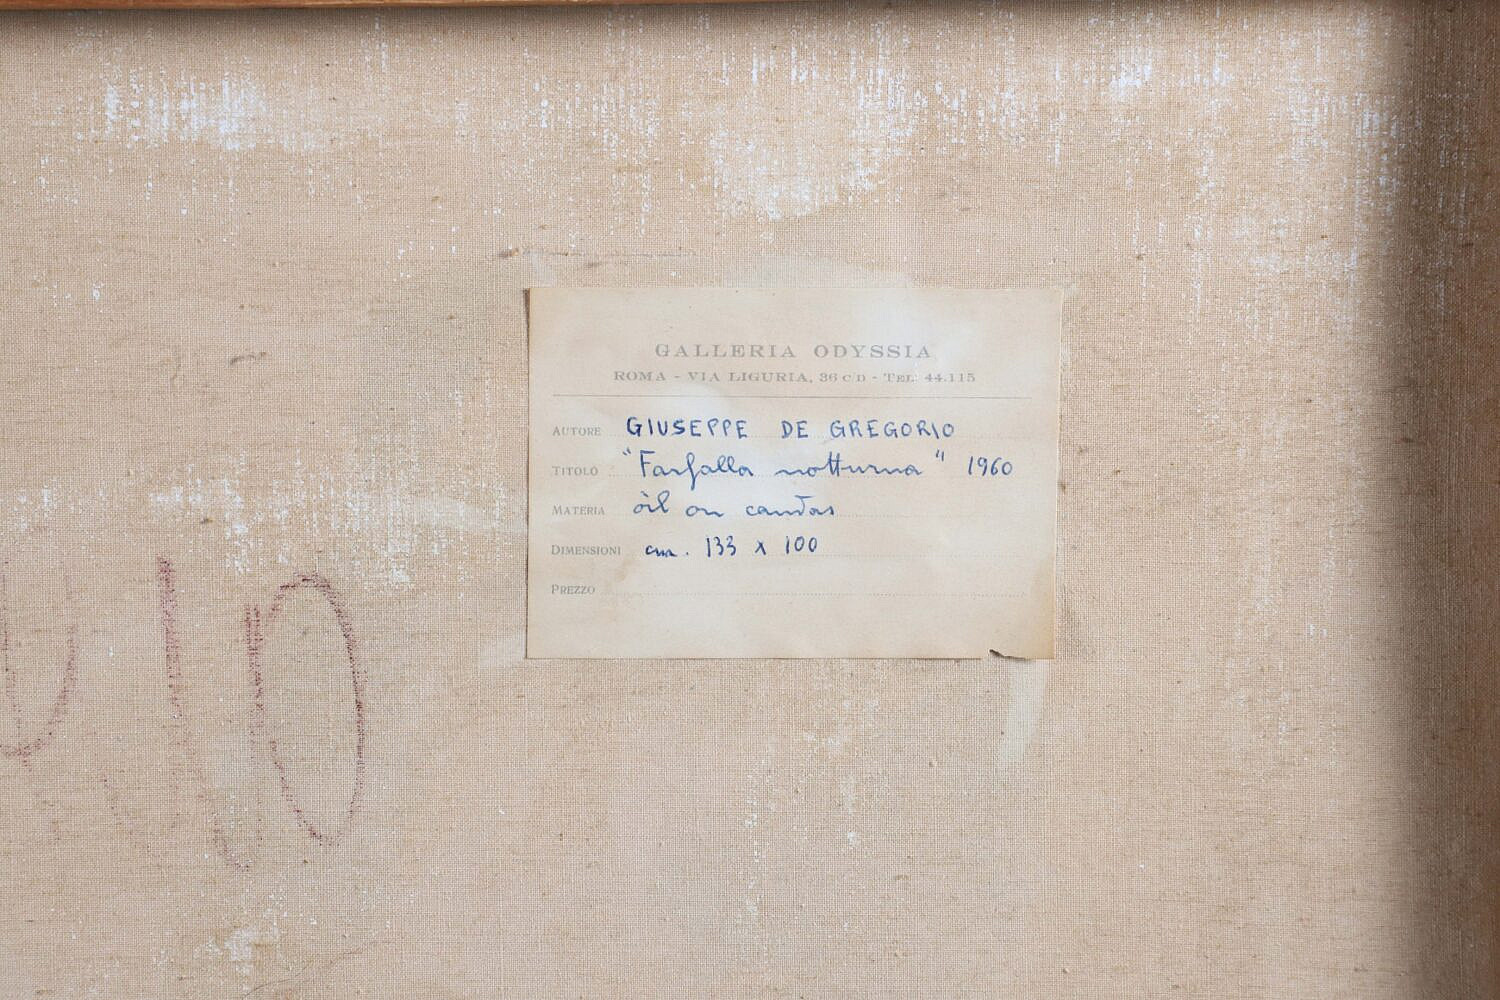 GALLERIA ODYSSIA
ROMA - VIA LIGURIA, 36 C D - TEL. 44.115
AUTORE GIUSEPPE DE GREGORIO
TITOLO "Farfalla notturna" 1960
MATERIA òil on canvas
DIMENSIONI cm. 133 x 100
PREZZO